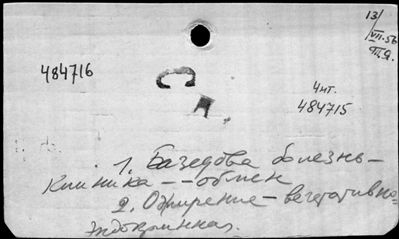 13/
VII-56
484716
С
Чит.
484715
1. Базедова болезнь –
Клиника – – обмен
2. Ожирение – вегетативно-
эндокринная.